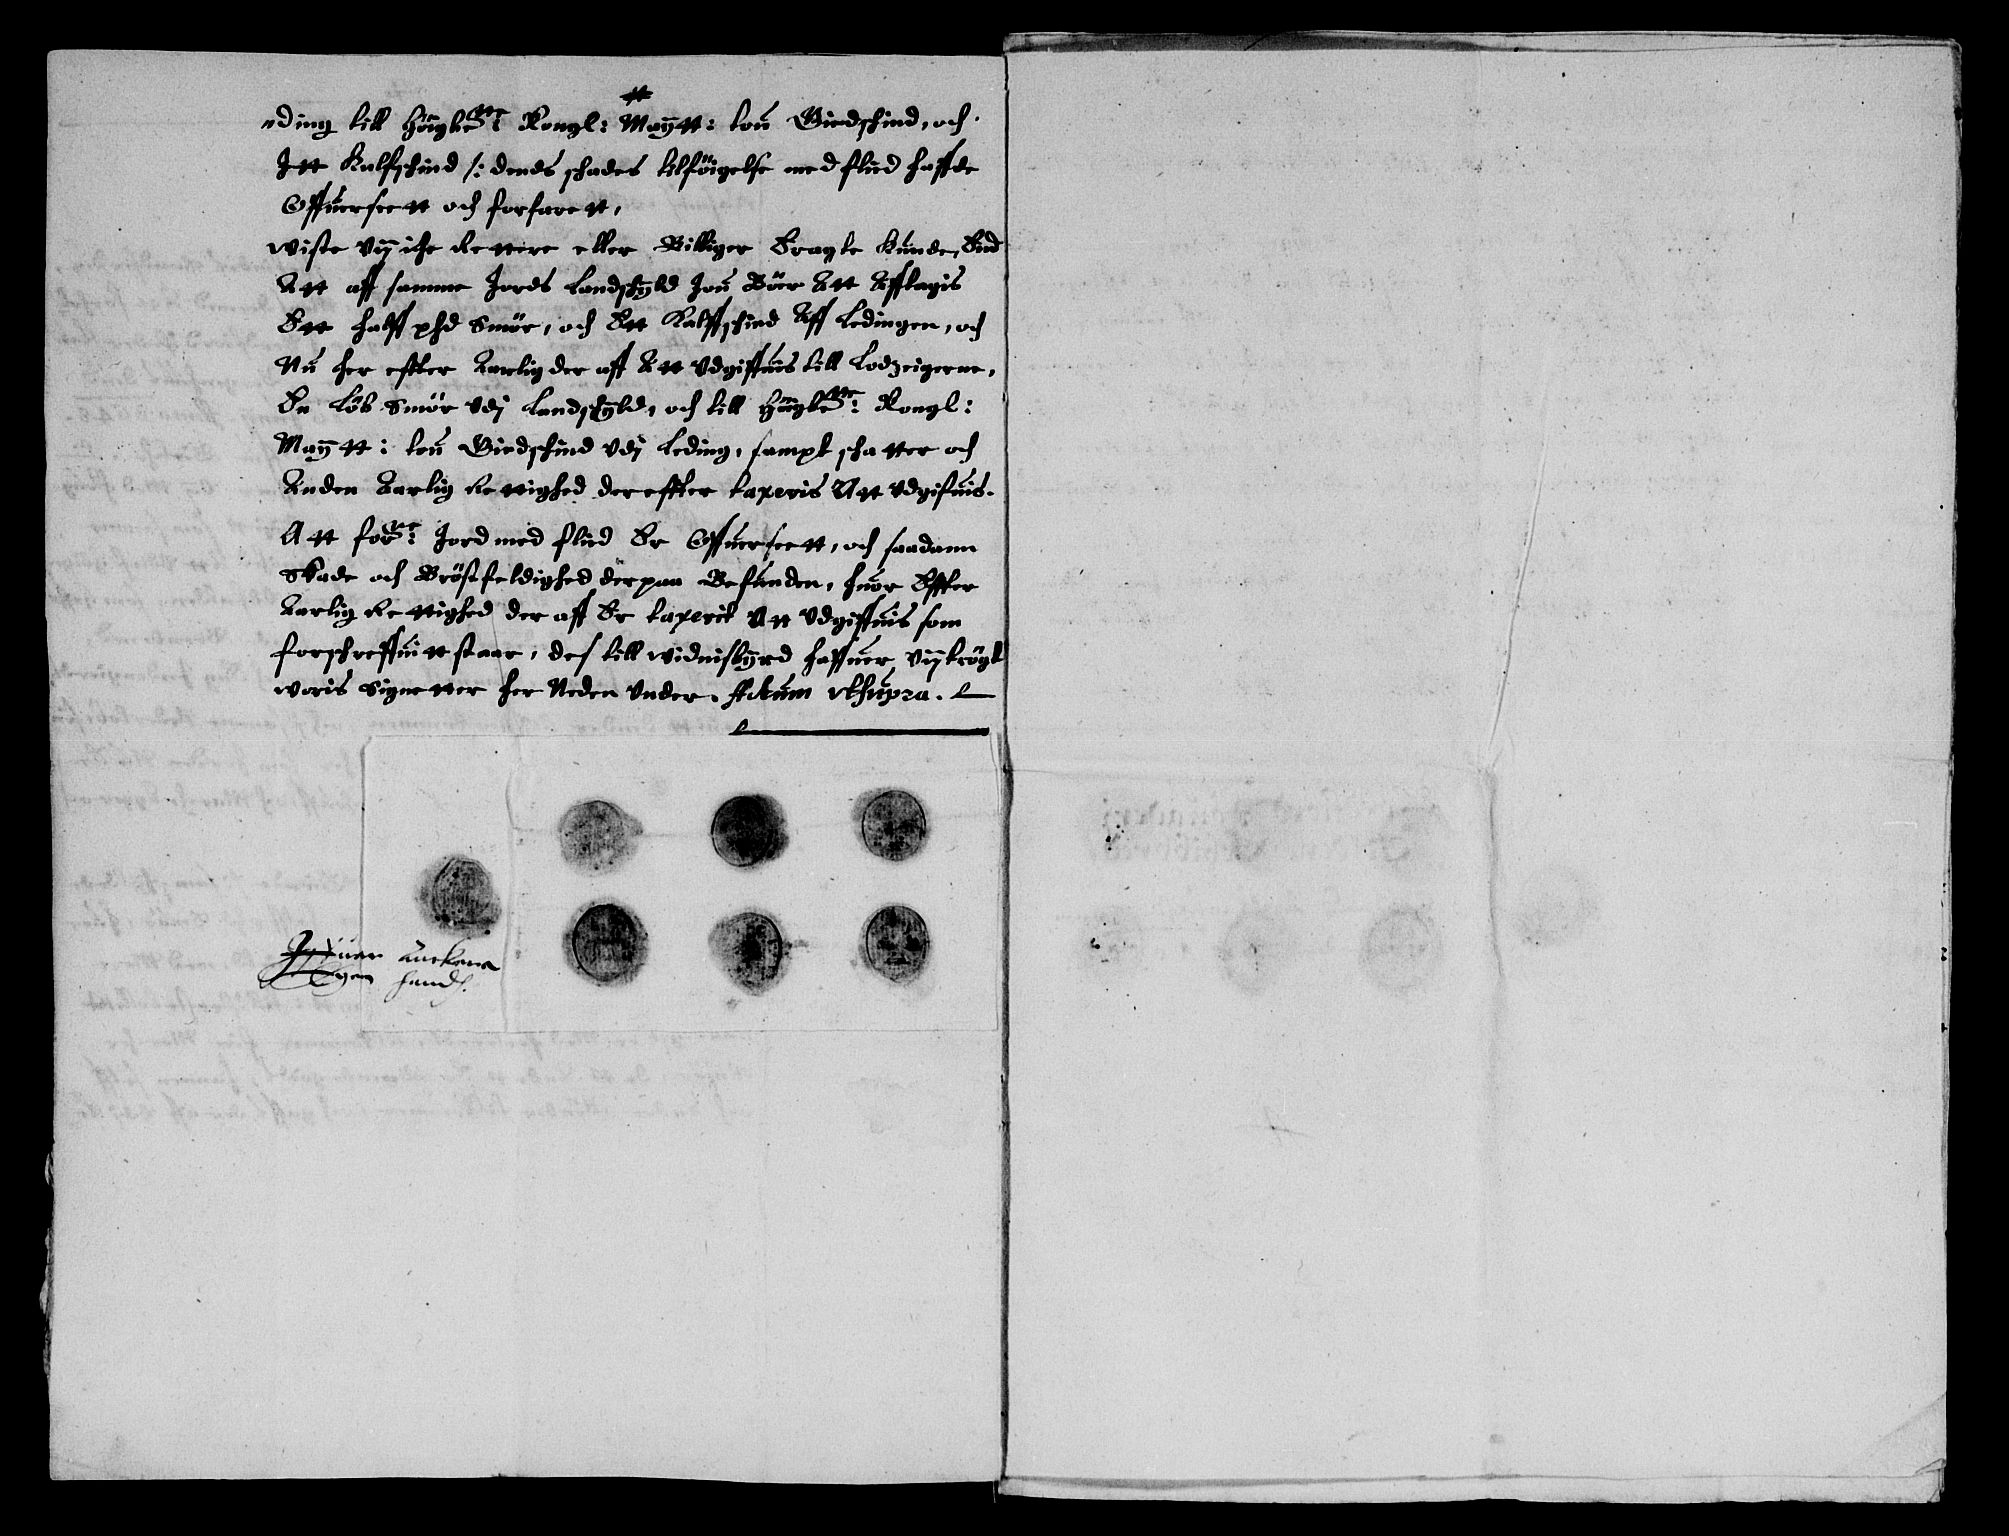 nding till högbe^te: Kongl: Maÿtt: toú Giedschind, och
Itt Kalfschind /: dends schades tilföigelse med flied haffde
Offúerseett och forfarett,
wiste vÿ iche Rettere eller Billiger Eragte kúnde, End
Att aff samme Jords Landschÿld Joú Böer Att Afflagis
Ett halff phd Smör, och Ett Kalffschind Aff Ledingen, och
Nú her effter Aarlig der aff Att Vdgiffúis till Lodzeigerne,
En Löb Smör Vdj Landschÿld, och till högbe^te: Kongl:
Maÿtt: toú Giedschind Vdj Leding, sampt schatter och
Anden Aarlig Rettighed dereffter taxeris Att Vdgifúis.
Att for^ne: Jord med flied Er Offúerseett, och saadann
Skade och Bröstfeldighed derpaa Befúnden, húor Effter
Aarlig Rettighed der aff Er taxerit Att Vdgiffúis som
forschreffúitt staar, des till widnisbÿrd haffúer vÿ trögt
woris Signetter her Neden Vnder. Actum vtsupra.
Egen handt.